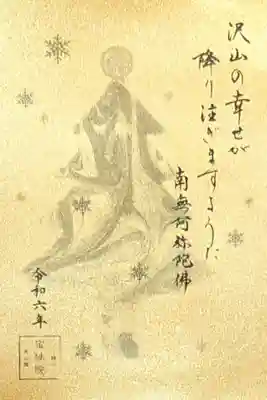 沢山の幸せが
降り注ぎますように
南無阿弥陀佛
令和六年